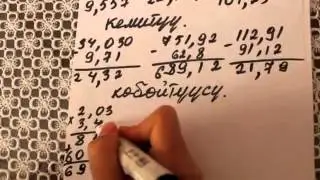 9,537
кемитүү.
34,030 - 751,92 - 112,91
9,71 62,8 91,12
24,32 689,12 21,79
көбөйтүүсү.
2,03
3,4
8
60
69